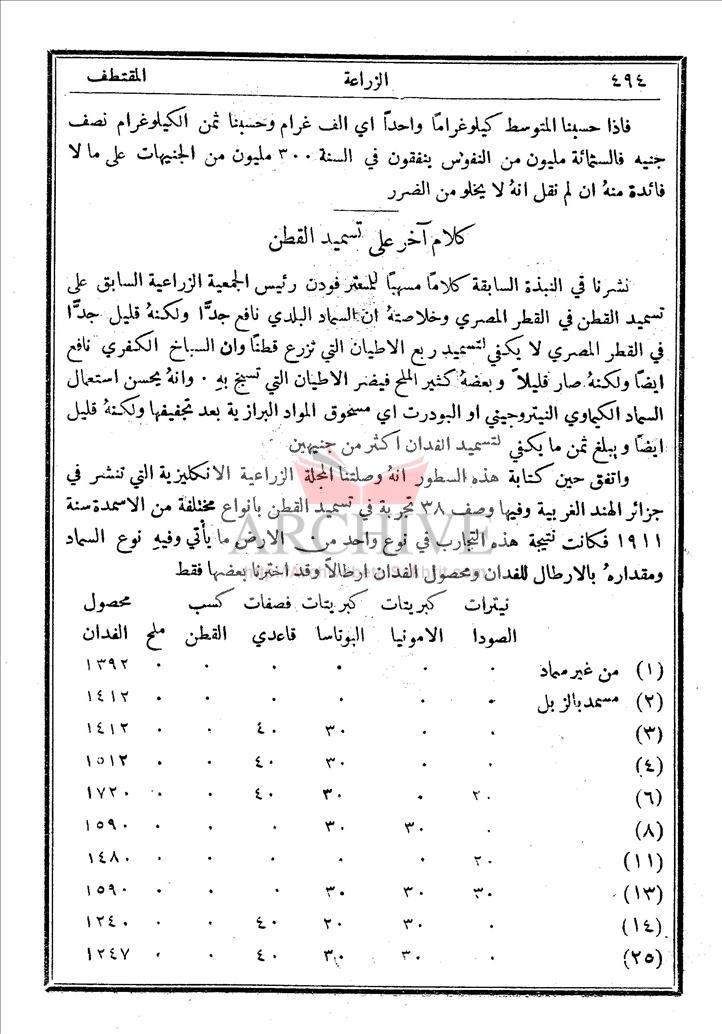 ٤٩٤ الزراعة المقتطف
فاذا حسبنا المتوسط كيلوغرامًا واحداً اي الف غرام وحسبنا ثمن الكيلوغرام نصف
جنيه فالستمائة مليون من النفوس ينفقون في السنة ٣٠٠ مليون من الجنيهات على ما لا
فائدة منهُ ان لم نقل انهُ لا يخلو من الضرر
كلام آخر على تسميد القطن
نشرنا في النبذة السابقة كلامًا مسهبًا للمستر فودن رئيس الجمعية الزراعية السابق على
تسميد القطن في القطر المصري وخلاصتهُ ان السماد البلدي نافع جدًّا ولكنهُ قليل جدًّا
في القطر المصري لا يكفي لتسميد ربع الاطيان التي تزرع قطنًا وان السباخ الكفري نافع
ايضًا ولكنهُ صار قليلاً وبعضهُ كثير الملح فيضر الاطيان التي تسبخ بهِ ٠ وانهُ يحسن استعمال
السماد الكيماوي النيتروجيني او البودرت اي مسحوق المواد البرازية بعد تجفيفها ولكنهُ قليل
ايضًا ويبلغ ثمن ما يكفي لتسميد الفدان اكثر من جنيهين
واتفق حين كتابة هذه السطور انهُ وصلتنا المجلة الزراعية الانكليزية التي تنشر في
جزائر الهند الغربية وفيها وصف ٣٨ تجربة في تسميد القطن بانواع مختلفة من الاسمدة سنة
ARCHIVE
١٩١١ فكانت نتيجة هذه التجارب في نوع واحد من الارض ما يأتي وفيهِ نوع السماد
ومقدارهُ بالارطال للفدان ومحصول الفدان ارطالاً وقد اخترنا بعضها فقط
نيترات كبريتات كبريتات فصفات كسب محصول
الصودا الامونيا البوتاسا قاعدي القطن ملح الفدان
(١) من غير سماد ٠ ٠ ٠ ٠ ٠ ٠ ١٣٩٢
(٢) مسمد بالزبل ٠ ٠ ٠ ٠ ٠ ٠ ١٤١٢
(٣) ٠ ٠ ٣٠ ٤٠ ٠ ٠ ١٤١٢
(٤) ٠ ٠ ٣٠ ٤٠ ٠ ٠ ١٥١٢
(٦) ٢٠ ٠ ٣٠ ٤٠ ٠ ٠ ١٧٢٠
(٨) ٠ ٣٠ ٣٠ ٠ ٠ ٠ ١٥٩٠
(١١) ٢٠ ٠ ٠ ٠ ٠ ٠ ١٤٨٠
(١٣) ٣٠ ٣٠ ٣٠ ٠ ٠ ٠ ١٥٩٠
(١٤) ٠ ٣٠ ٢٠ ٤٠ ٠ ٠ ١٢٤٠
(٢٥) ٠ ٣٠ ٣٠ ٤٠ ٠ ٠ ١٢٤٧